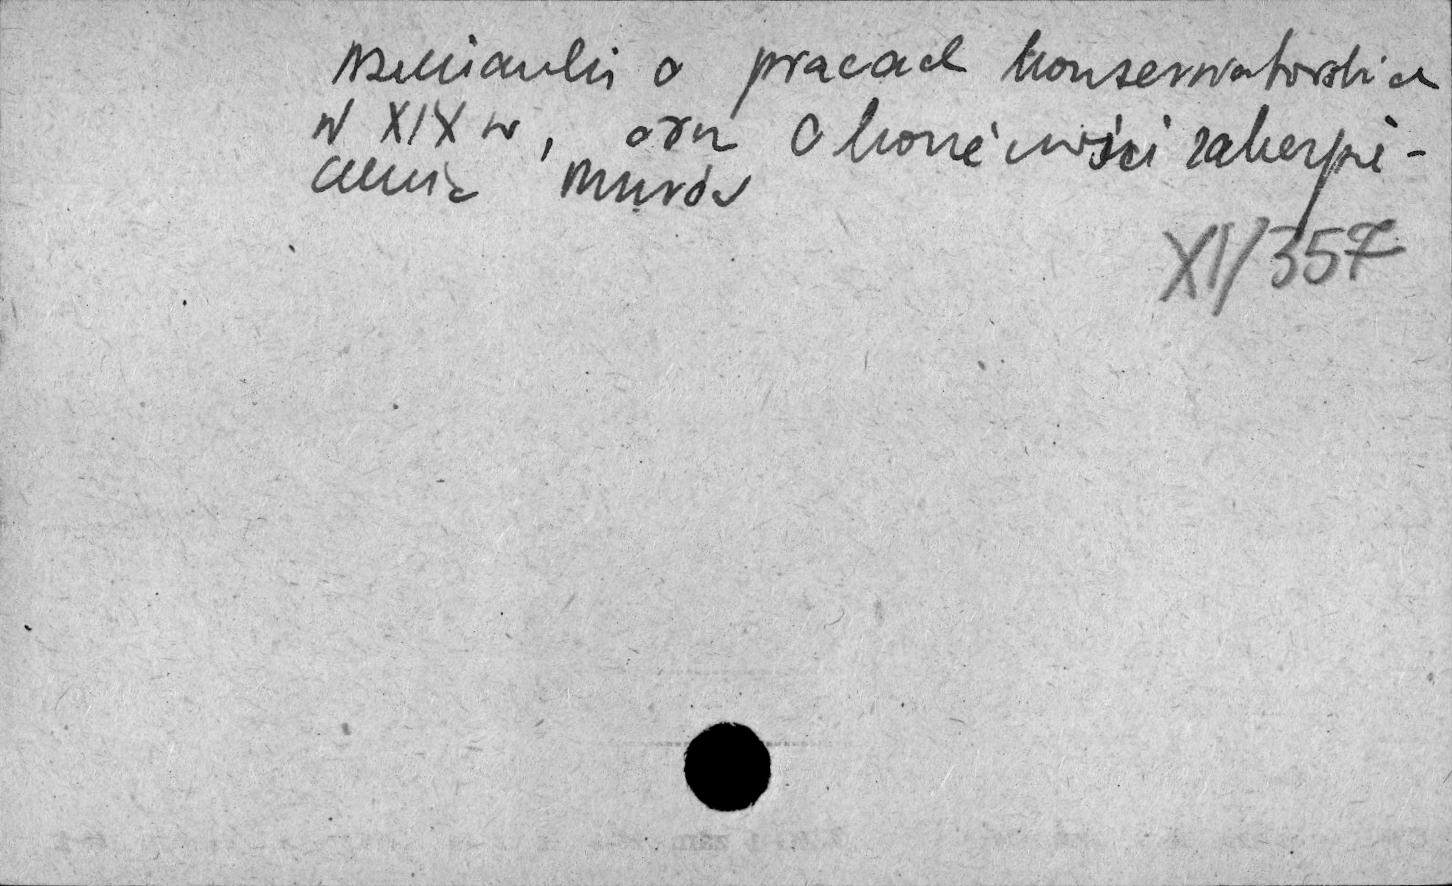 wzmianki o pracach konserwatorskich
w XIX w, oraz o konieczności zabezpie-
czenia murów
XI/357